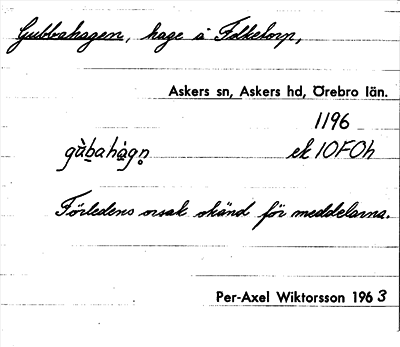 Gubbahagen, hage å Folketorp,
Askers sn, Askers hd, Örebro län.
1196
gù̱ba̱hàg̥n ek 10F0h
Förledens orsak okänd för meddelarna.
Per-Axel Wiktorsson 1963